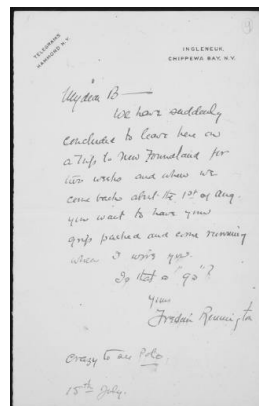 TELEGRAMS
HAMMOND N.Y.
INGLENEUK,
CHIPPEWA BAY, N.Y.
My dear B—
We have suddenly
concluded to leave here on
a trip to New Foundland for
two weeks and when we
come back about the 1st of Aug.
you want to have your
grip packed and come running
when I wire you.
Is that a "go"?
Yours
Frederic Remington
crazy to see Polo.
15th July.